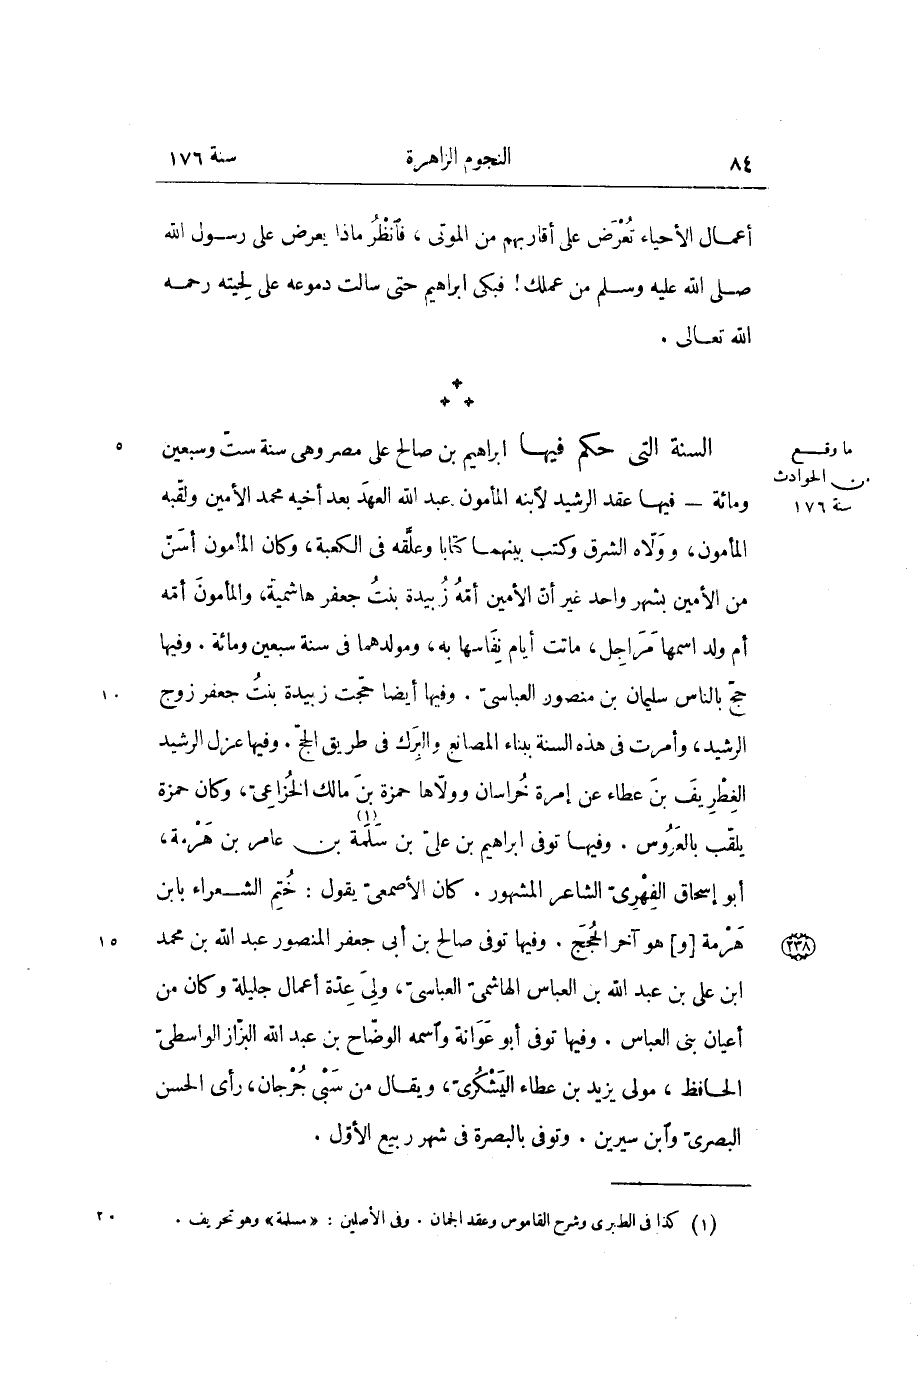 ٨٤ النجوم الزاهرة سنة ١٧٦
أعمـال الأحياء تُعْرَض على أقاربهم من الموتى ، فٱنْظُرْ ماذا يعرض على رسـول الله
صـلى الله عليه وسـلم من عملك! فبكى ابراهيم حتى سالت دموعه على لحيته رحمـه
الله تعـالى .
ما وقـع
من الحوادث
سنة ١٧٦
السنة التى حكم فيهـا ابراهيم بن صالح على مصر وهى سنة ستّ وسبعين ٥
ومائة — فيهـا عقد الرشيد لٱبنه المأمون عبد الله العهدَ بعد أخيه محمد الأمين ولقّبه
المأمون، وولّاه الشرق وكتب بينهمـا كتابا وعلّقه فى الكعبة، وكان المأمون أسَنّ
من الأمين بشهر واحد غير أنّ الأمين أمّهُ زُبيدة بنتُ جعفر هاشمية، والمأمونَ أمّه
أم ولد اسمها مَرَاجِل، ماتت أيام نِفَاسها به، ومولدهما فى سنة سبعين ومائة . وفيها
حجّ بالناس سليمان بن منصور العباسىّ . وفيها أيضا حجّت زبيدة بنتُ جعفر زوج ١٠
الرشيد، وأمرت فى هذه السنة ببناء المصانع والبِرَك فى طريق الحجّ . وفيها عزل الرشيد
الغِطْريفَ بنَ عطاء عن إمرة خُراسان وولّاها حمزة بنَ مالك الخُزاعىّ، وكان حمزة
يلقّب بالعَرُوس . وفيهـا توفى ابراهيم بن علىّ بن سَلَمة (١) بن عامر بن هَرْمة،
أبو إسحاق الفِهْرىّ الشاعر المشهور . كان الأصمعىّ يقول : خُتِم الشـعراء بابن
هَرْمة [و] هو آخر الحُجَج . وفيها توفى صالح بن أبى جعفر المنصور عبد الله بن محمد ١٥
٢٣٨
ابن على بن عبد الله بن العباس الهاشمىّ العباسىّ، ولِىَ عدّة أعمال جليلة وكان من
أعيان بنى العباس . وفيها توفى أبو عَوَانة وٱسمه الوضّاح بن عبد الله البزّاز الواسطىّ
الحـافظ ، مولى يزيد بن عطاء اليَشْكُرىّ، ويقال من سَبْىِ جُرْجان، رأى الحسن
البصرىّ وٱبن سيرين . وتوفى بالبصرة فى شهر ربيع الأوّل .
(١) كذا فى الطبرى وشرح القاموس وعقد الجمان . وفى الأصلين : «مسلمة» وهو تحريف . ٢٠